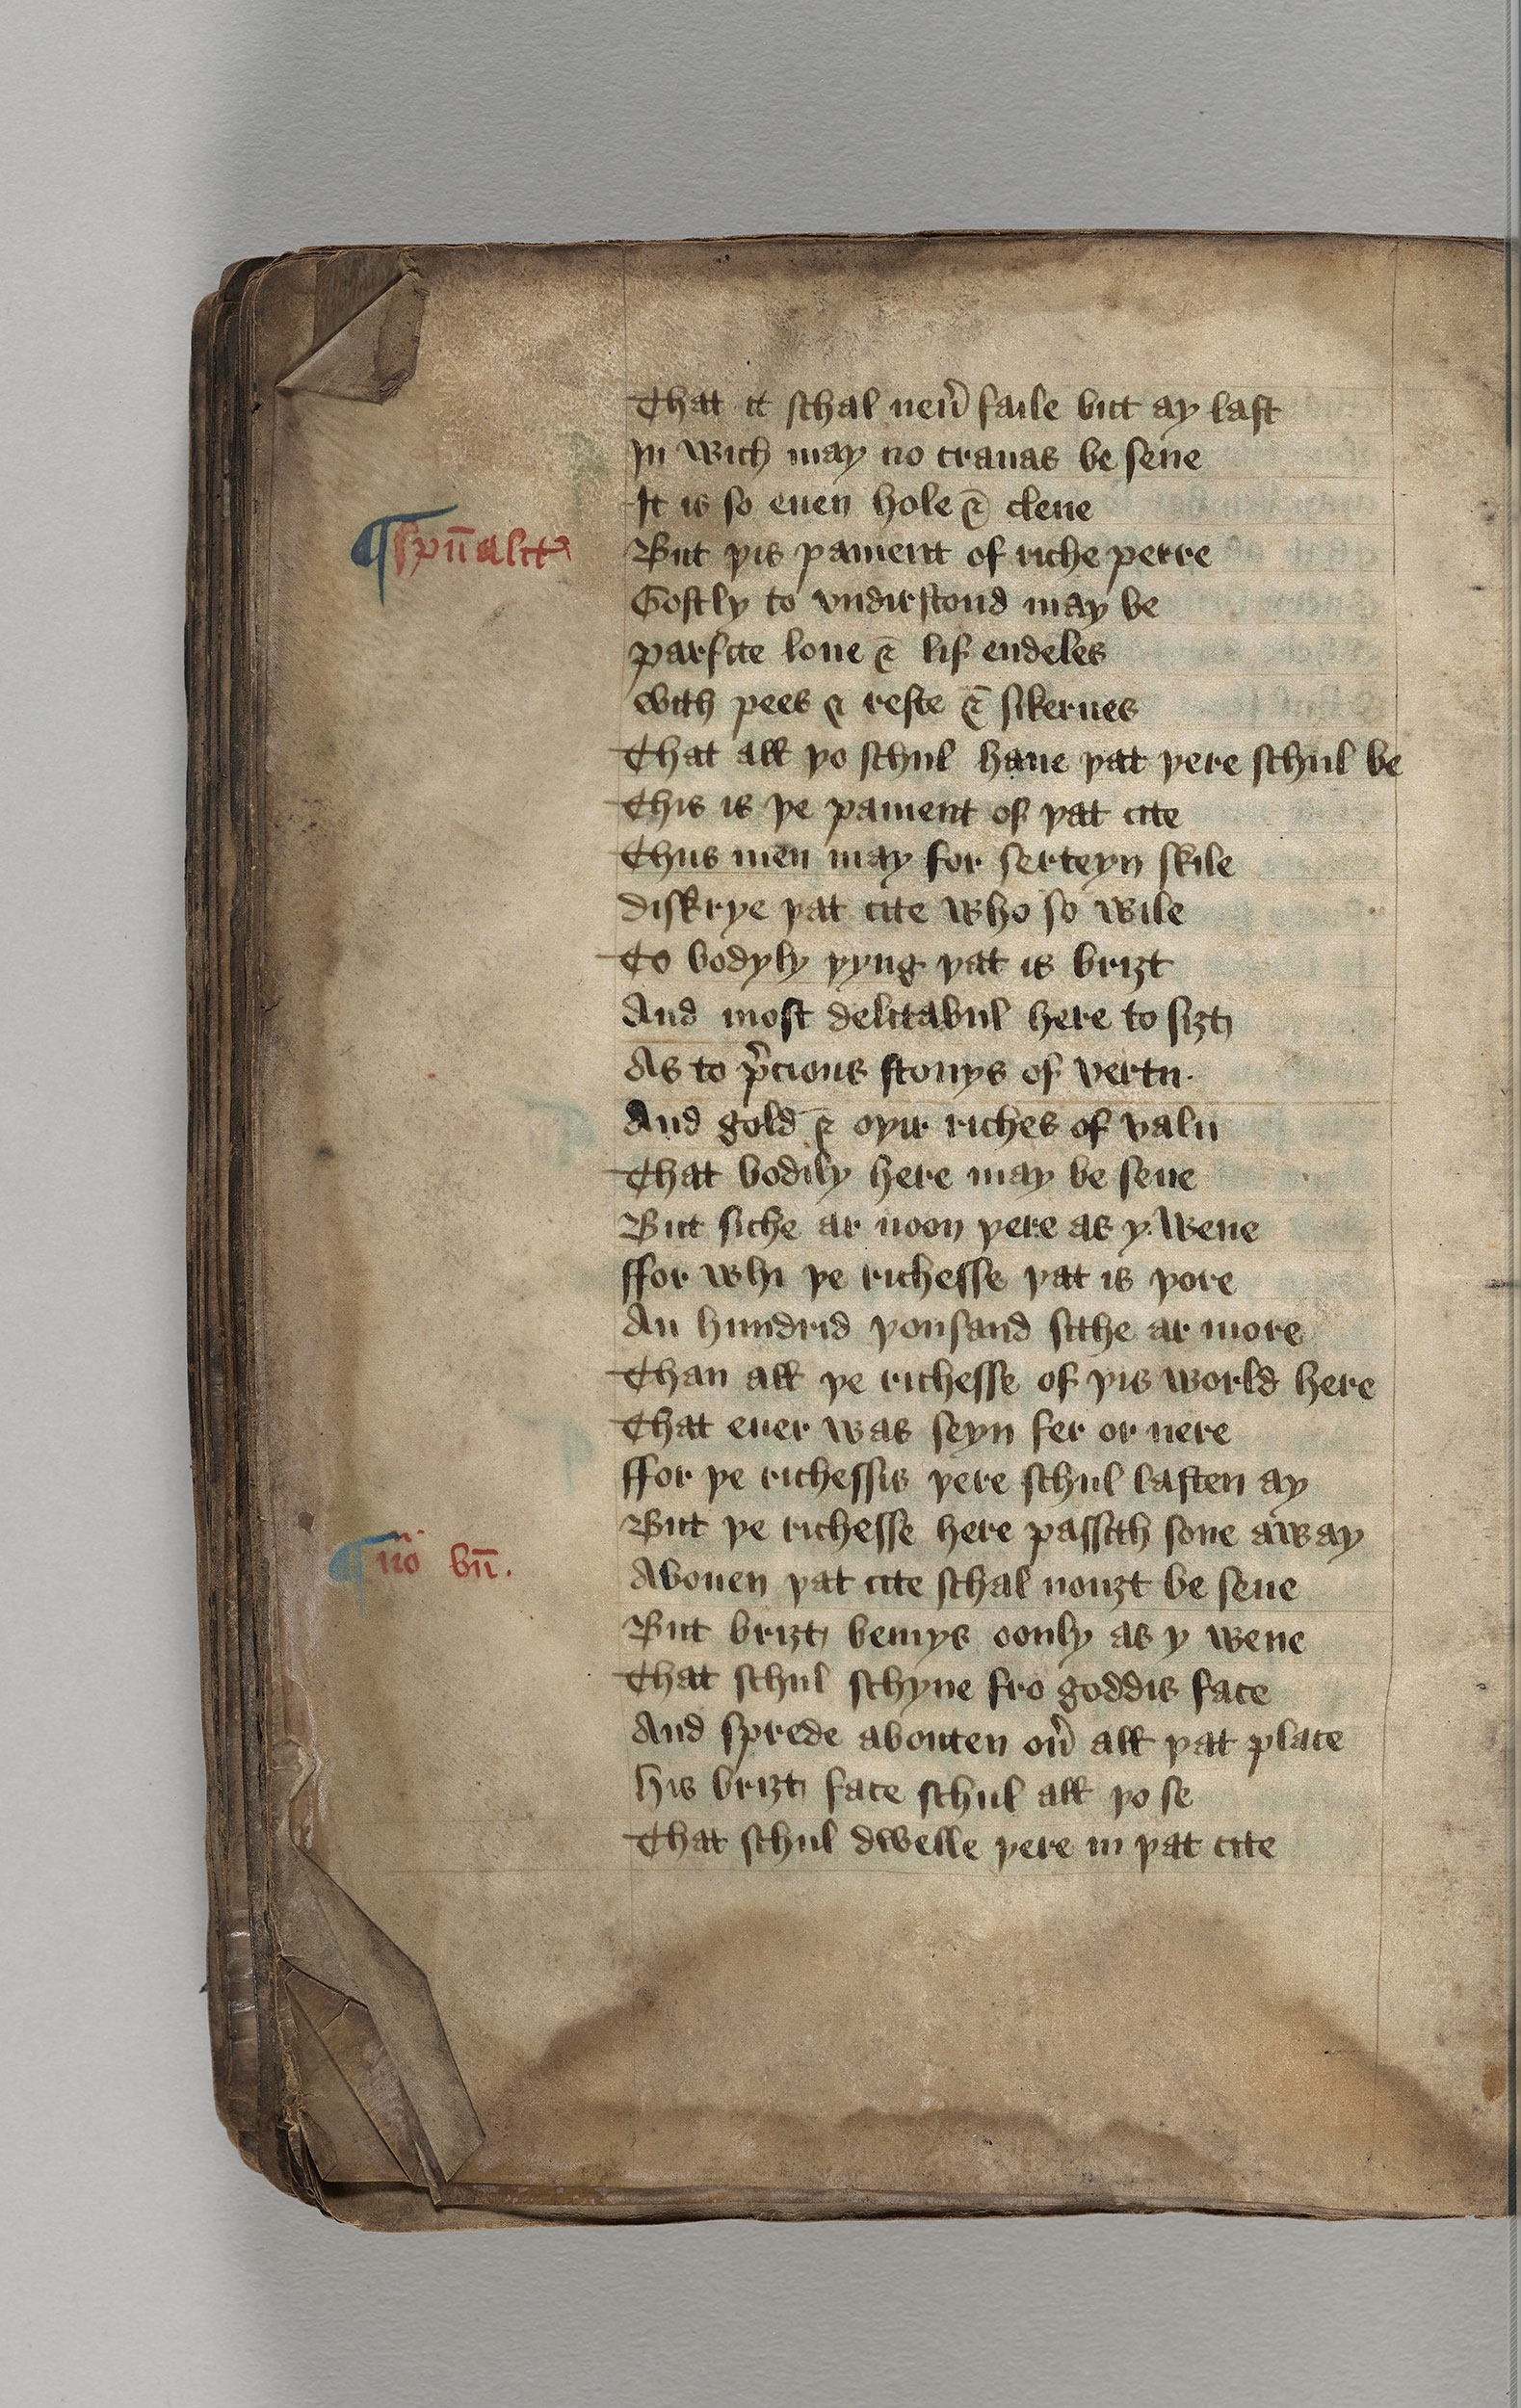 That it schal neu̾ faile but ay last
In wich may no crauas be sene
It is so euen hole & clene
¶ sp̄ualit
But þis pament of riche perre
Gostly to vndirstond may be
parfite loue & lif endeles
With pees & reste & sikernes
That all þo schul haue þat þere schul be
This is þe pament of þat cite
Thus men may for serteyn skile
diskrye þat cite who so wile
To bodyly þyng þat is briȝt
And most delitabul here to siȝt
As to p̾cious stonys of vertu·
And gold & oþir riches of valu
That bodily here may be sene
But siche ar noon þere as y. wene
ffor whi þe richesse þat is þore
An hundrid þousand sithe ar more
Than all þe richesse of þis world here
That euer was seyn fer or nere
ffor þe richessis þere schul lasten ay
But þe richesse here passith sone away
¶ no bn̄.
Abouen þat cite schal nouȝt be sene
But briȝt bemys oonly as y wene
That schul schyne fro goddis face
And sprede abouten ou̾ all þat place
his briȝt face schul all þo se
That schul dwelle þere in þat cite